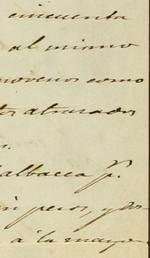 cincuenta
al mismo
novenos como
tos atrasados
s.
albacea p.ª
n pesos, y dos
a la mayor